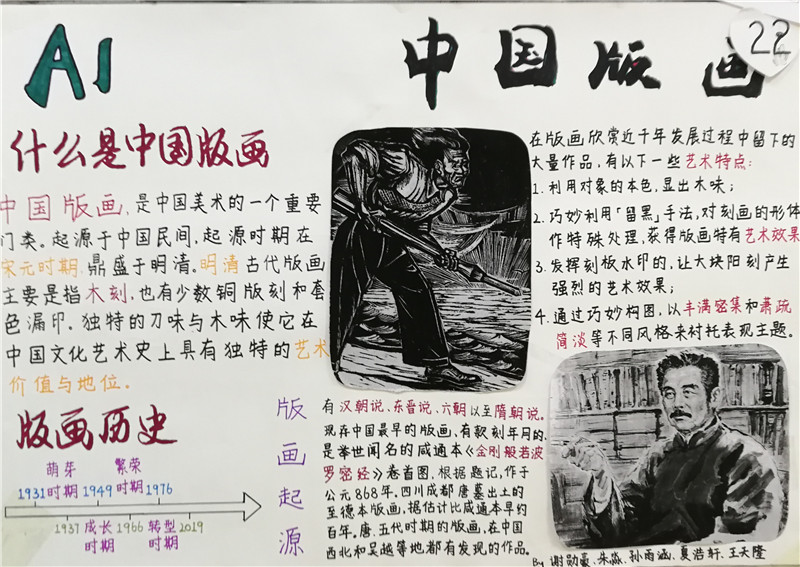 A1
中国版画
22
什么是中国版画
中国版画,是中国美术的一个重要
门类。起源于中国民间,起源时期在
宋元时期,鼎盛于明清。明清古代版画
主要是指木刻,也有少数铜版刻和套
色漏印。独特的刀味与木味使它在
中国文化艺术史上具有独特的艺术
价值与地位。
在版画欣赏近千年发展过程中留下的
大量作品,有以下一些艺术特点:
1. 利用对象的本色,显出木味;
2. 巧妙利用「留黑」手法,对刻画的形体
作特殊处理,获得版画特有艺术效果
3. 发挥刻板水印的,让大块阳刻产生
强烈的艺术效果;
4. 通过巧妙构图,以丰满密集和萧疏
简淡等不同风格来衬托表现主题。
版画历史
萌芽时期
繁荣时期
1931 1949 1976
1937 成长时期 1966 转型时期 2019
版画起源
有汉朝说、东晋说、六朝以至隋朝说。
现存中国最早的版画、有款刻年月的,
是举世闻名的咸通本《金刚般若波
罗密经》卷首图,根据题记,作于
公元868年,四川成都唐墓出土的
至德本版画,据估计比咸通本早约
百年。唐、五代时期的版画,在中国
西北和吴越等地都有发现的作品。
By 谢勋豪、朱淼、孙雨涵、夏浩轩、王天隆